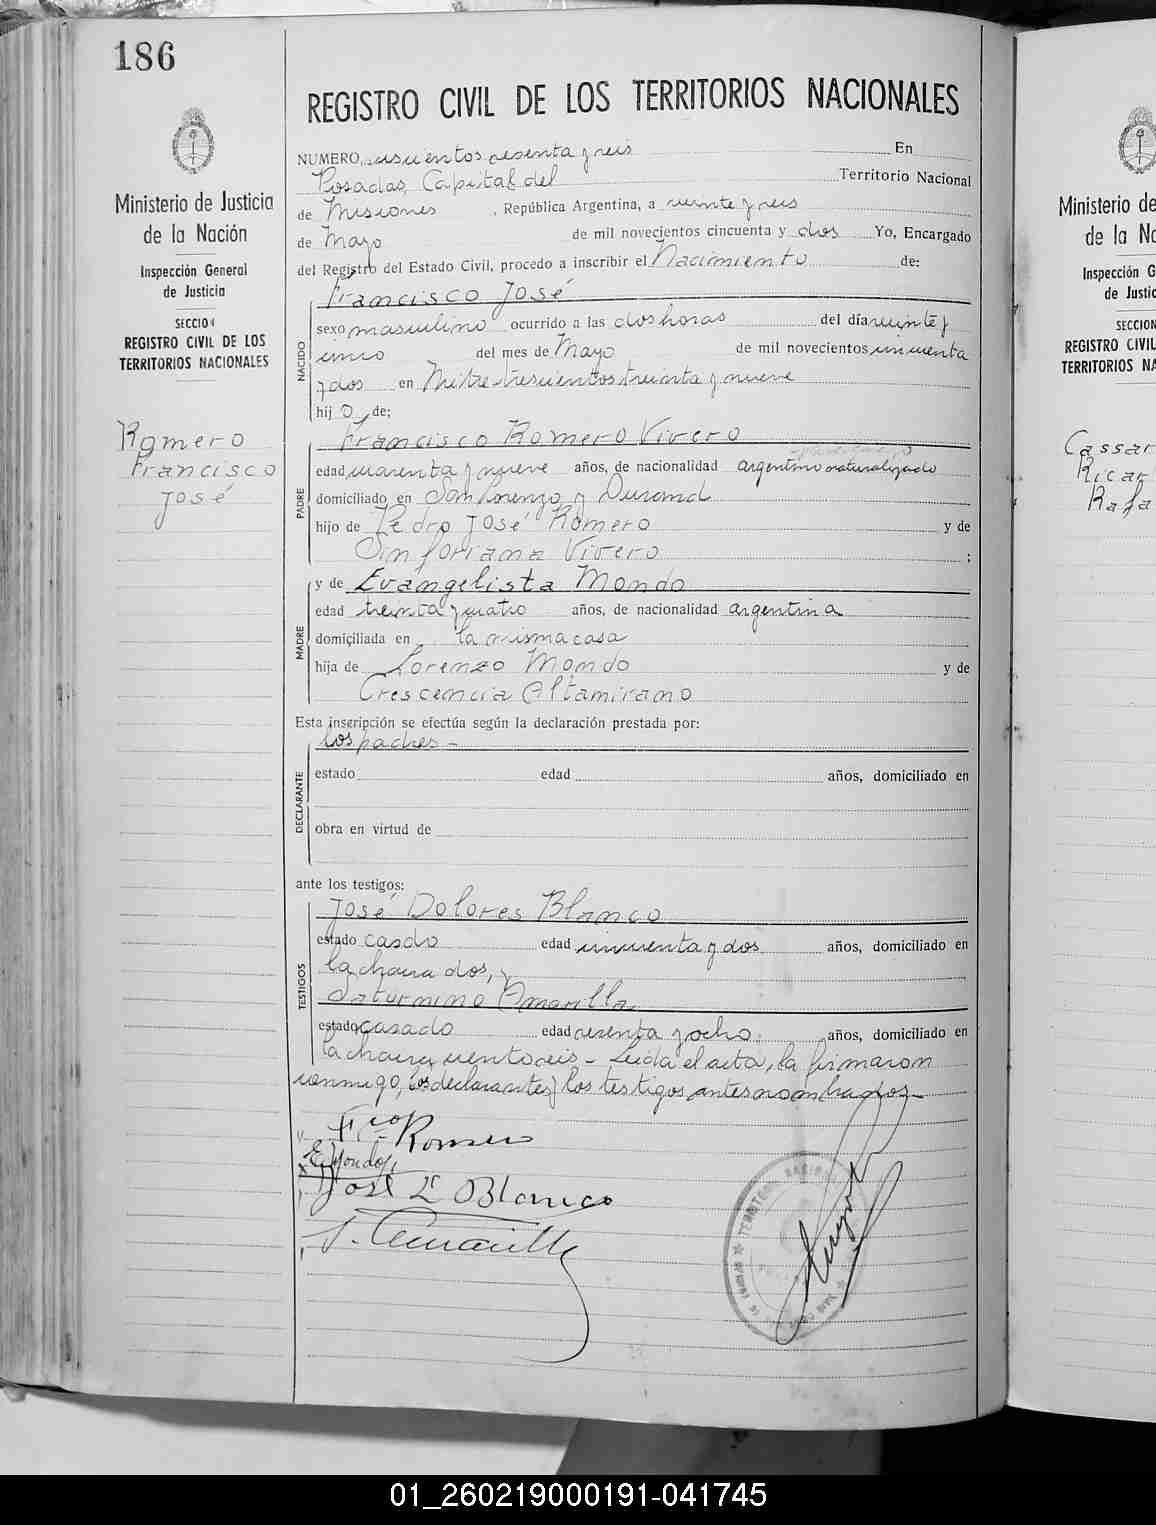 186
REGISTRO CIVIL DE LOS TERRITORIOS NACIONALES
Ministerio de Justicia
de la Nación
Inspección General
de Justicia
SECCION
REGISTRO CIVIL DE LOS
TERRITORIOS NACIONALES
Romero
Francisco
José
NUMERO seiscientos sesenta y seis En
Posadas, Capital del Territorio Nacional
de Misiones, República Argentina, a veinte y seis
de Mayo de mil novecientos cincuenta y dos Yo, Encargado
del Registro del Estado Civil, procedo a inscribir el Nacimiento de:
Francisco José
NACIDO
sexo masculino ocurrido a las dos horas del día veinte y
cinco del mes de Mayo de mil novecientos cincuenta
y dos en Mitre trescientos treinta y nueve
hijo de;
Francisco Romero Vivero
PADRE
edad cuarenta y nueve años, de nacionalidad argentino naturalizado
domiciliado en San Lorenzo y Durand
hijo de Pedro José Romero y de
Sinforiana Vivero ;
MADRE
y de Evangelista Mondo
edad treinta y cuatro años, de nacionalidad argentina
domiciliada en la misma casa
hija de Lorenzo Mondo y de
Crescencia Altamirano
Esta inscripción se efectúa según la declaración prestada por:
los padres -
DECLARANTE
estado edad años, domiciliado en
obra en virtud de
ante los testigos:
José Dolores Blanco
TESTIGOS
estado casado edad cincuenta y dos años, domiciliado en
la chacra dos, y
Saturnino Amarilla
estado casado edad sesenta y ocho años, domiciliado en
la chacra ciento seis - Leida el acta, la firmaron
conmigo, los declarantes y los testigos antes nombrados -
Fco Romero
E. Mondo
José D. Blanco
S. Amarilla
TERRITORIO NACIONAL
Ministerio de
de la Na
Inspección G
de Justic
SECCION
REGISTRO CIVIL
TERRITORIOS NA
Cassar
Ricar
Rafa
01_260219000191-041745